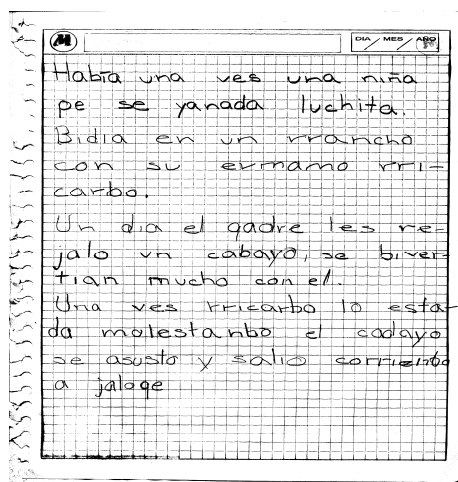 M
DIA MES AÑO
Había una ves una niña
pe se yanada luchita.
Bidia en un rrancho
con su ermamo rri-
carbo.
Un dia el qadre les re-
jalo un cabayo, se biver-
tian mucho con el.
Una ves rricarbo lo esta-
da molestanbo el cadayo
se asusto y salio corrienbo
a jaloqe